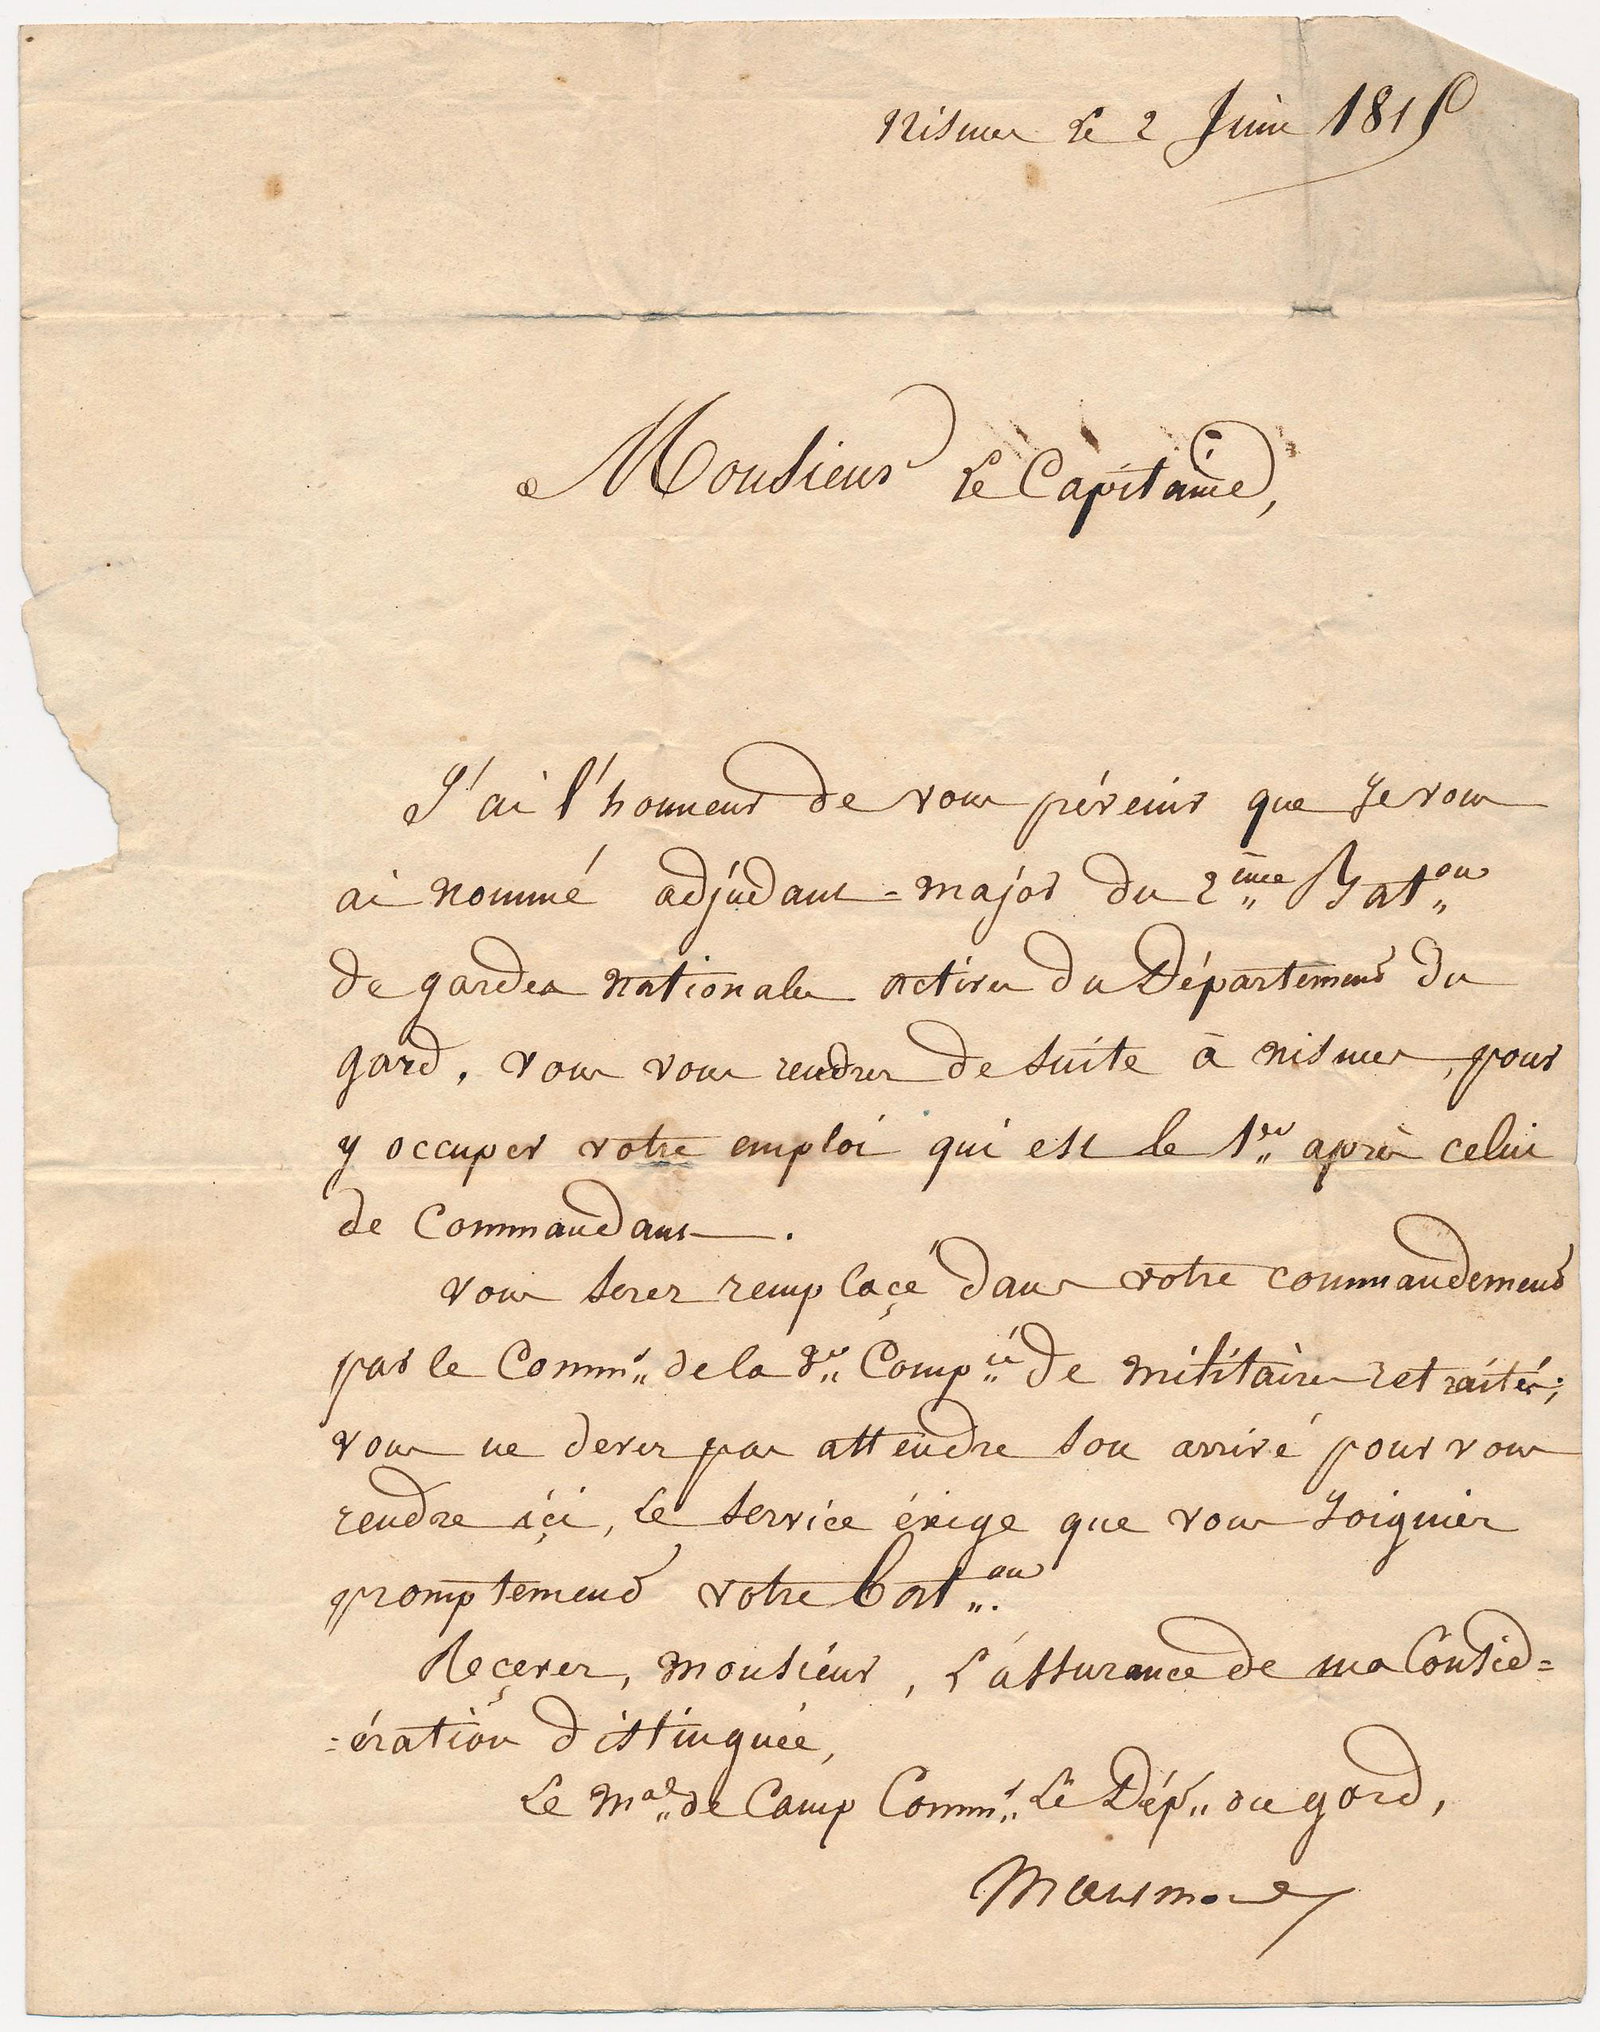 Nismes le 2 Juin 1815
Monsieur le Capitaine,
J'ai l'honneur de vous prévenir que je vous
ai nommé adjudant-major du 2ème Baton
de gardes nationales actives du Département du
gard, vous vous rendrez de suite à nismes, pour
y occuper votre emploi qui est le 1er après celui
de Commandant.
vous serez remplaçé dans votre commandement
par le Commt de la Compie de militaires retraités;
vous ne devez pas attendre son arrivé pour vous
rendre içi, le service éxige que vous soigniez
promptement votre baton.
Reçevez, monsieur, l'assurance de ma Consid=
=ération distinguée,
Le Mal de Camp Commt le Dépt du gard,